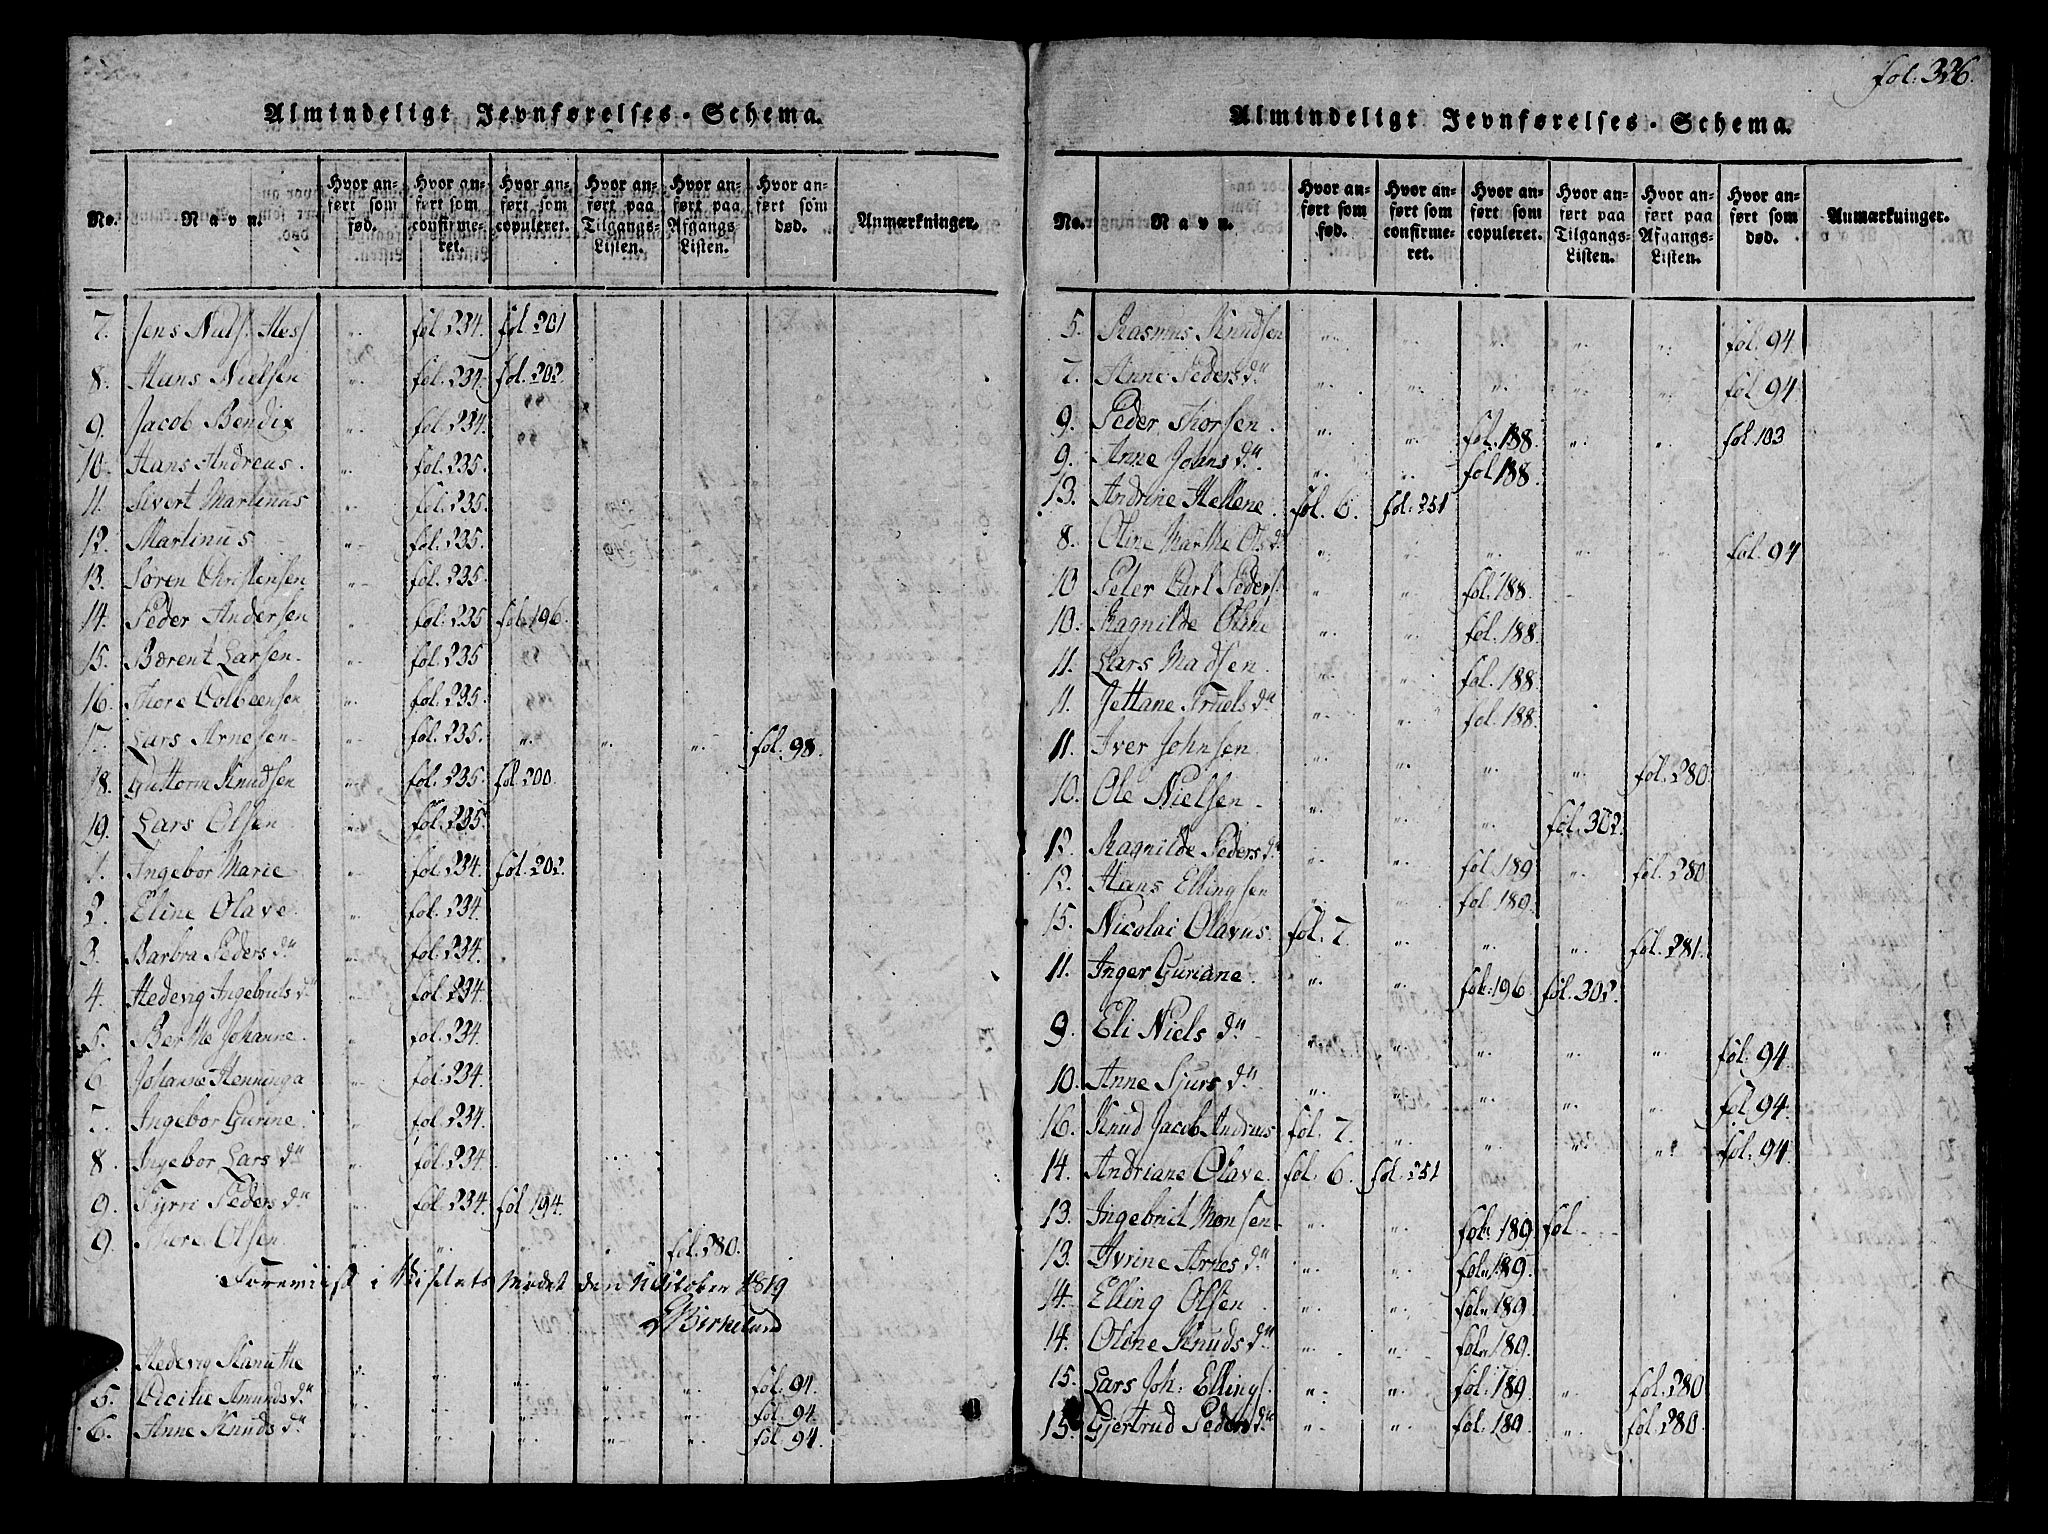 fol: 326.
Almindeligt Jevnførelses-Schema.
No. Navn. Hvor anført som fød. Hvor anført som confirmeret. Hvor anført som copuleret. Hvor anført paa Tilgangs-Listen. Hvor anført paa Afgangs Listen. Hvor anført som død. Anmærkninger.
7. Jens Niels. Hess " fol. 234. fol 201
8. Hans Nielsen " fol. 234. fol. 202.
9. Jacob Bendix " fol. 234.
10. Hans Andreas. " fol. 235.
11. Sivert Martinus " fol. 235.
12. Martinus " fol. 235.
13. Søren Christensen " fol. 235.
14. Peder Andersen " fol. 235 fol. 196.
15. Bærent Larsen. " fol. 235
16. Thore Colbeensen " fol. 235.
17. Lars Arnesen " fol. 235. " " " fol. 98.
18. Guttorm Knudsen " fol. 235. fol. 200.
19. Lars Olsen " fol. 235.
1. Ingebor Marie " fol. 234. fol. 202.
2. Eline Olave. " fol. 234.
3. Barbra Peders dr " fol. 234.
4. Hedevig Ingebrits dr " fol. 234.
5. Berthe Johanne. " fol. 234.
6. Johanne Henninga " fol. 234.
7. Ingebor Gurine. " fol. 234.
8. Ingebor Lars dr " fol. 234.
9. Tyrri Peders dr " fol. 234. fol 194.
9. Thore Olsen " " " " fol. 280.
Foreviist i Bispens Mødet den Uctober 1819
Birkelund
Hedevig Hanuthe " " " " " fol. 94.
5. Cicilie Amunds dr " " " " " fol. 94.
6. Anne Knuds dr " " " " " fol. 94.
Almindeligt Jevnførelses-Schema.
No. Navn. Hvor anført som fød. Hvor anført som confirmeret. Hvor anført som copuleret. Hvor anført paa Tilgangs-Listen. Hvor anført paa Afgangs-Listen. Hvor anført som død. Anmærkninger.
5. Rasmus Knudsen " " " " fol. 94.
7. Anne Peders dr " " " " " fol. 94
9. Peder Thorsen. " " fol. 188. " " fol. 103
9. Anne Johns dr. " " fol. 188.
13. Andrine Hellene. fol. 6. fol. 251
8. Oline Marthe Ols dr " " " " " fol. 94
10 Peter Carl Peders. " " fol. 188.
10. Ragnilde Oline " " fol. 188.
11. Lars Madsen. " " fol. 188.
11. Jettane Truels dr " " fol. 188.
11. Iver Johnsen. " " " " fol. 280
10. Ole Nielsen " " " fol. 302.
12. Ragnilde Peders dr " " fol 189 " fol. 280.
12. Hans Ellingsen " " fol 189.
15. Nicolai Olavus. fol. 7. " " " fol. 281.
11. Inger Guriane. " " fol. 196. fol. 302.
9. Eli Niels dr " " " " " fol. 94.
10. Anne Sjurs dr " " " " " fol. 94.
16. Knud Jacob Andreas fol. 7. " " " " fol. 94.
14. Andriane Olave. fol. 6. fol. 251
13. Ingebrit Monsen " " fol. 189 fol
13. Gurine Arnes dr " " fol. 189.
14. Elling Olsen " " fol. 189.
14. Oline Knuds dr " " fol. 189.
15. Lars Joh: Ellings. " " fol. 189 " fol. 280
15. Gjertrud Peders dr " " fol. 189 " fol. 280.